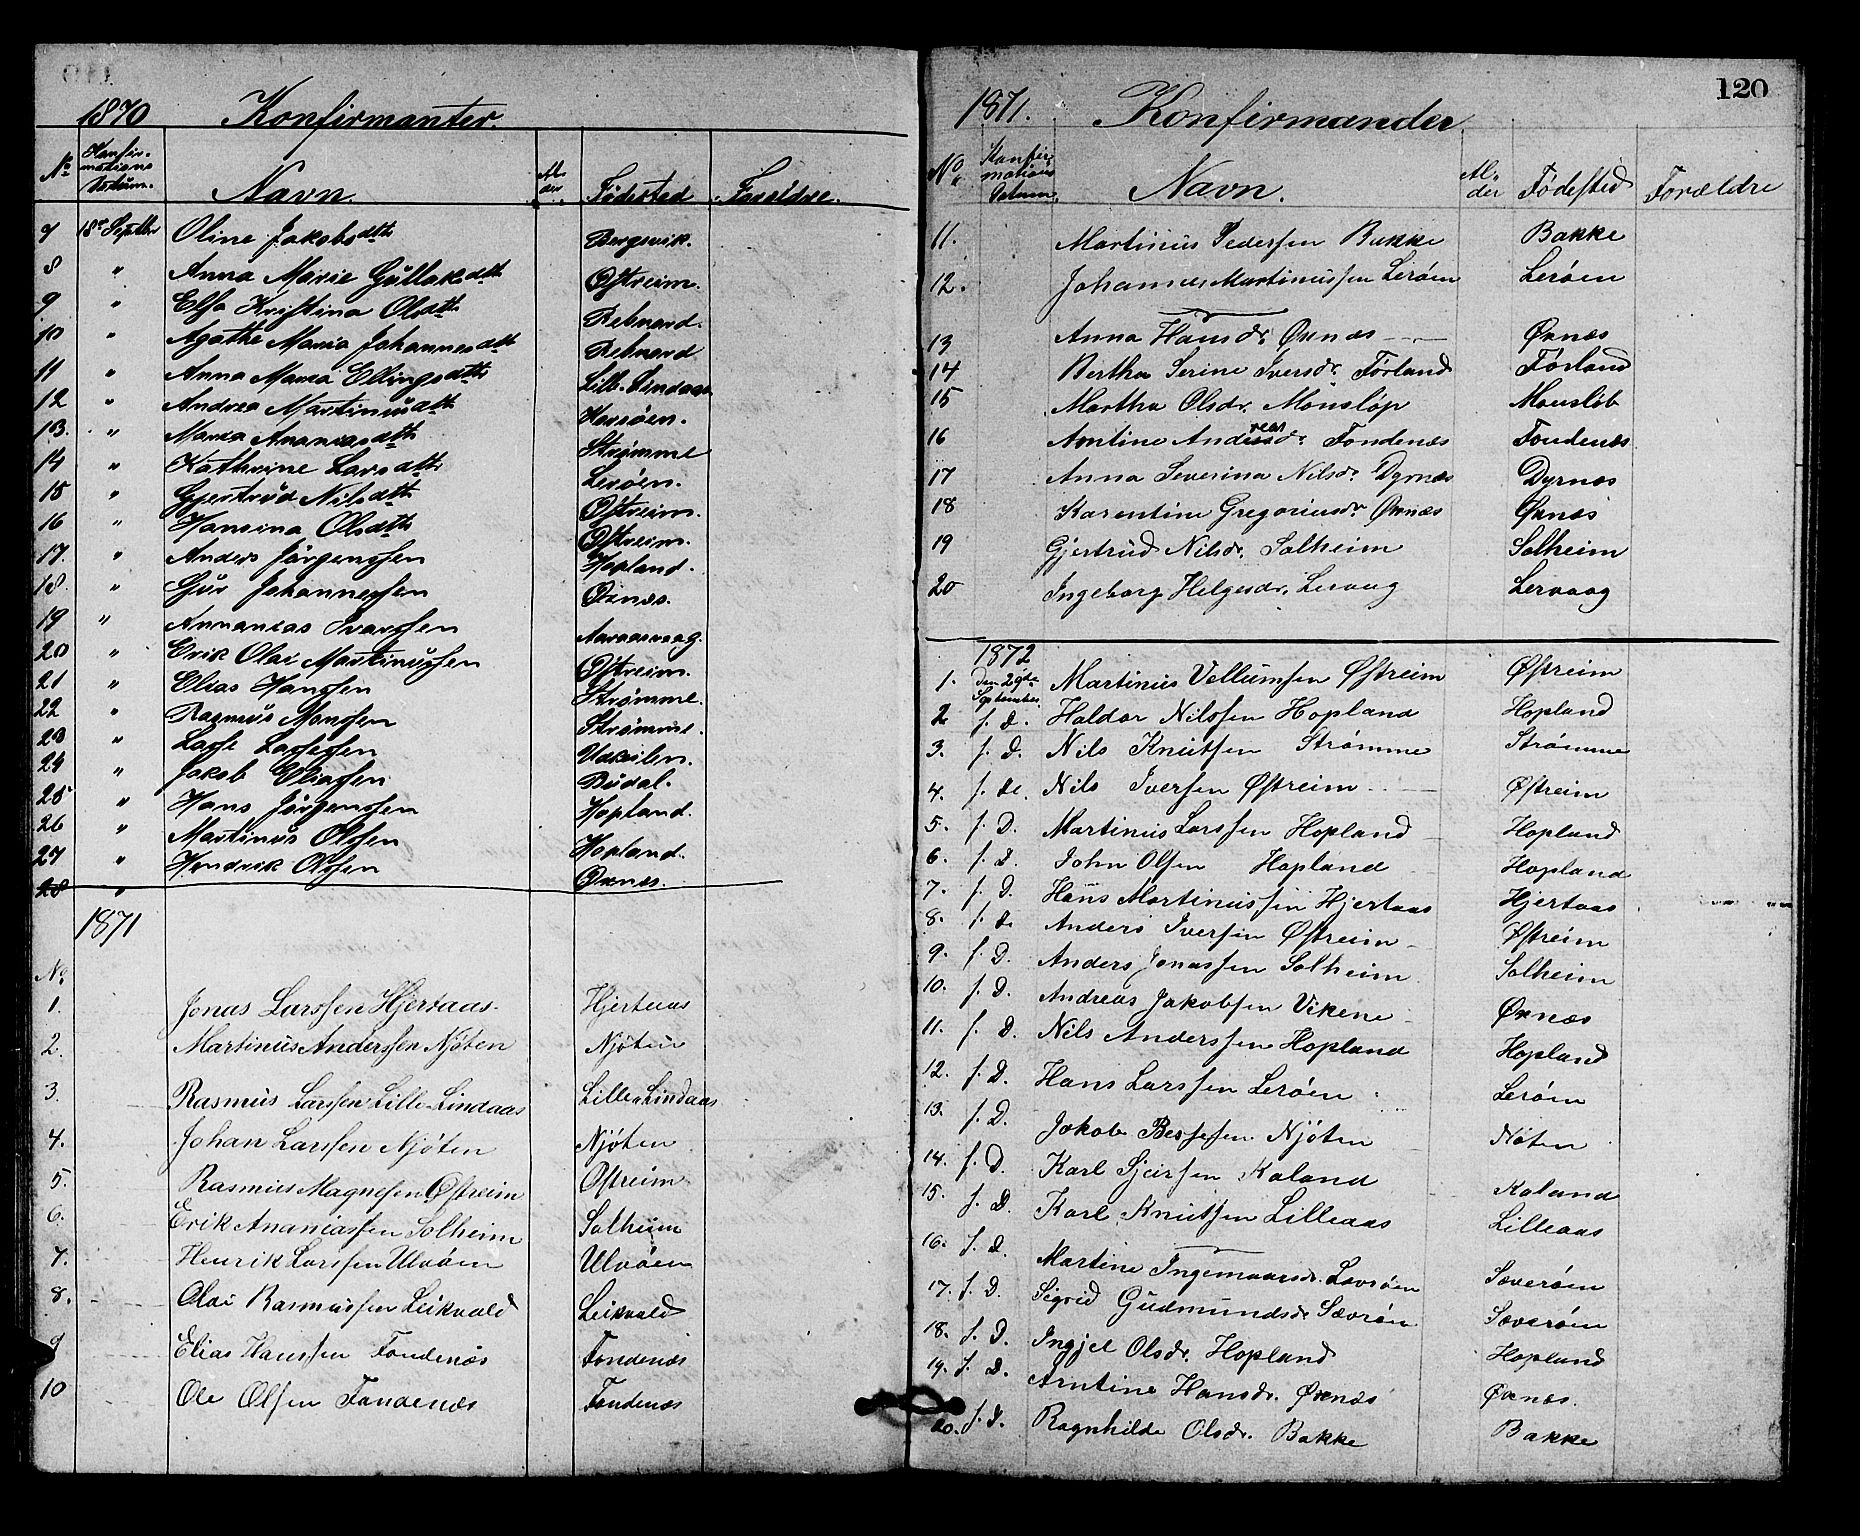 1870 Konfirmanter.
No Konfirmations Datum. Navn. Alder Fødested Forældre.
7 18de Septbr Oline Jakobsdtr Bergsvik.
8 " Anna Marie Gullaksdtr Østreim.
9 " Elsa Kristina Olsdtr Rebnord.
10 " Agathe Maria Johannesdtr Rebnord
11 " Anna Maria Ellingsdtr Lille-Lindaas
12 " Andrea Martinusdtr
13. " Maria Ananiasdtr Strømme
14 " Kathrine Larsdtr Lerøen.
15 " Gjertrud Nilsdtr Østreim.
16 " Hansina Olsdtr Østreim.
17. " Anders Jörgenssen Hopland.
18. " Johannessen Øxnæs.
19 " Annanias Ivarssen
20 " Erik Olai Martinussen Østreim.
21 " Elias Hanssen Strømme.
22 " Rasmus Monssen Strømme.
23 " Lasse Lassessen
24 " Jakob Eliassen
25 " Hans Jörgenssen Hopland.
26 " Martinus Olssen Hopland.
27 " Hendrik Olssen Øxnæs.
28 "
1871
No
1. Jonas Larssen Hjertaas. Hjertaas
2. Martinus Anderssen Njöten Njöten
3. Rasmus Larssen Lille-Lindaas Lille-Lindaas
4. Johan Larssen Njöten Njöten
5. Rasmus Magnesen Østreim Østreim
6. Erik Ananiassen Solheim Solheim
7. Henrik Larssen Ulvöen Ulvöen
8. Olai Rasmussen Leikvold Leikvold
9 Elias Hanssen Fondenæs Fondenæs
10 Ole Olsen Fondenæs Fondenæs
120
1871. Konfirmander
No. Konfirmations Datum. Navn. Alder Fødested Forældre
11. Martinus Pedersen Bakke Bakke
12. Johannes Martinussen Leröen Leröen
13 Anna Hansdr. Øxnæs Øxnæs
14 Bertha Serine Iversdr. Förland Förland
15 Martha Olsdr. Monslöp Monslöb
16 Arntine Andreasdr. Fondenæs Fondenæs
17 Anna Severina Nilsdr. Dyrnæs Dyrnæs
18 Karentine Gregoriusdr. Øxnæs Øxnæs
19 Gjertrud Nilsdr. Solheim Solheim
20 Ingeborg Helgesdr. Lervaag Lervaag
1872
1. den 29de September Martinus Vellumsen Østreim Østreim
2 s. D. Haldor Nilssen Hopland Hopland
3. s. D. Nils Knutsen Strømme Strømme
4. s. d. Nils Iversen Østreim Østreim
5. s. D. Martinus Larssen Hopland Hopland
6. s. D. John Olsen Hopland Hopland
7. s. D. Hans Martinussen Hjertaas Hjertaas
8. s. d. Anders Iversen Østreim Østreim
9. s. D. Anders Jonassen Solheim Solheim
10. s. D. Andreas Jakobsen Vikene Øxnæs
11. s. D. Nils Anderssen Hopland Hopland
12. s. D. Hans Larssen Leröen Leröen
13. s. D. Jakob Njöten Nöten
14. s. D. Karl Kaland Kaland
15. s. D. Karl Knutsen Lilleaas Lilleaas
16. s. D. Martine Ingemaarsdr. Sæveröen
17. s. D. Sigrid Gudmundsdr. Sævröen Sæveröen
18. s. D. Ingjel Olsdr. Hopland Hopland
19. s. D. Arntine Hansdr. Øxnæs Øxnæs.
20. s. d. Ragnhilde Olsdr. Bakke Bakke